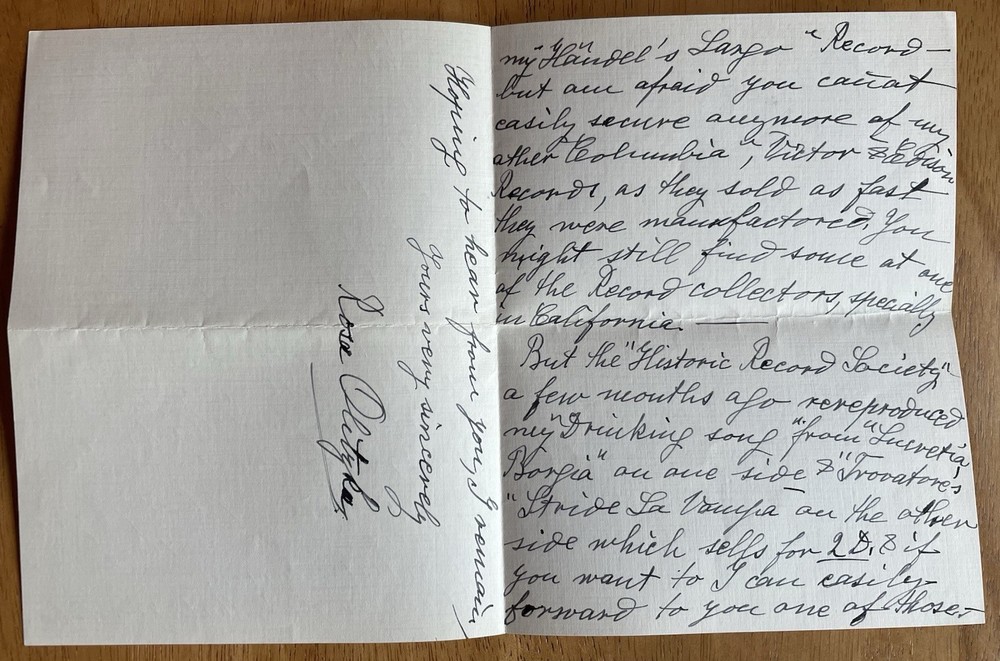 my "Händel's Largo" Record—
but am afraid you cañot
easily secure anymore of my
other "Columbia", Victor & Edison
Records, as they sold as fast
they were manufactored. You
might still find some at one
of the Record collectors, specially
in California. —
But the "Historic Record Society"
a few months ago rereproduced
my "Drinking song" from "Lucretia
Borgia" on one side & "Trovatore's
"Stride La Vampa" on the other
side which sells for 2 D. & if
you want to I can easily
forward to you one of those—
Hoping to hear from you, I remain
Yours very sincerely
Rosa Olitzka.